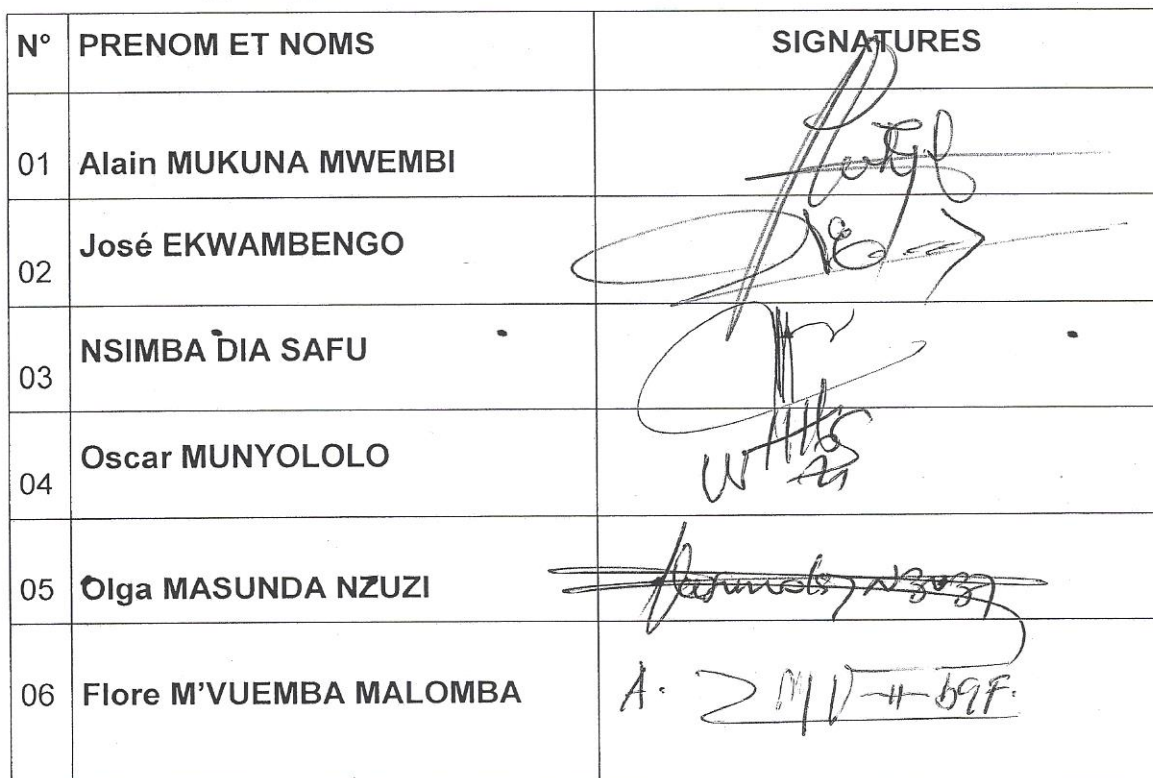 N° PRENOM ET NOMS SIGNATURES
01 Alain MUKUNA MWEMBI
02 José EKWAMBENGO
03 NSIMBA DIA SAFU
04 Oscar MUNYOLOLO
05 Olga MASUNDA NZUZI
06 Flore M'VUEMBA MALOMBA